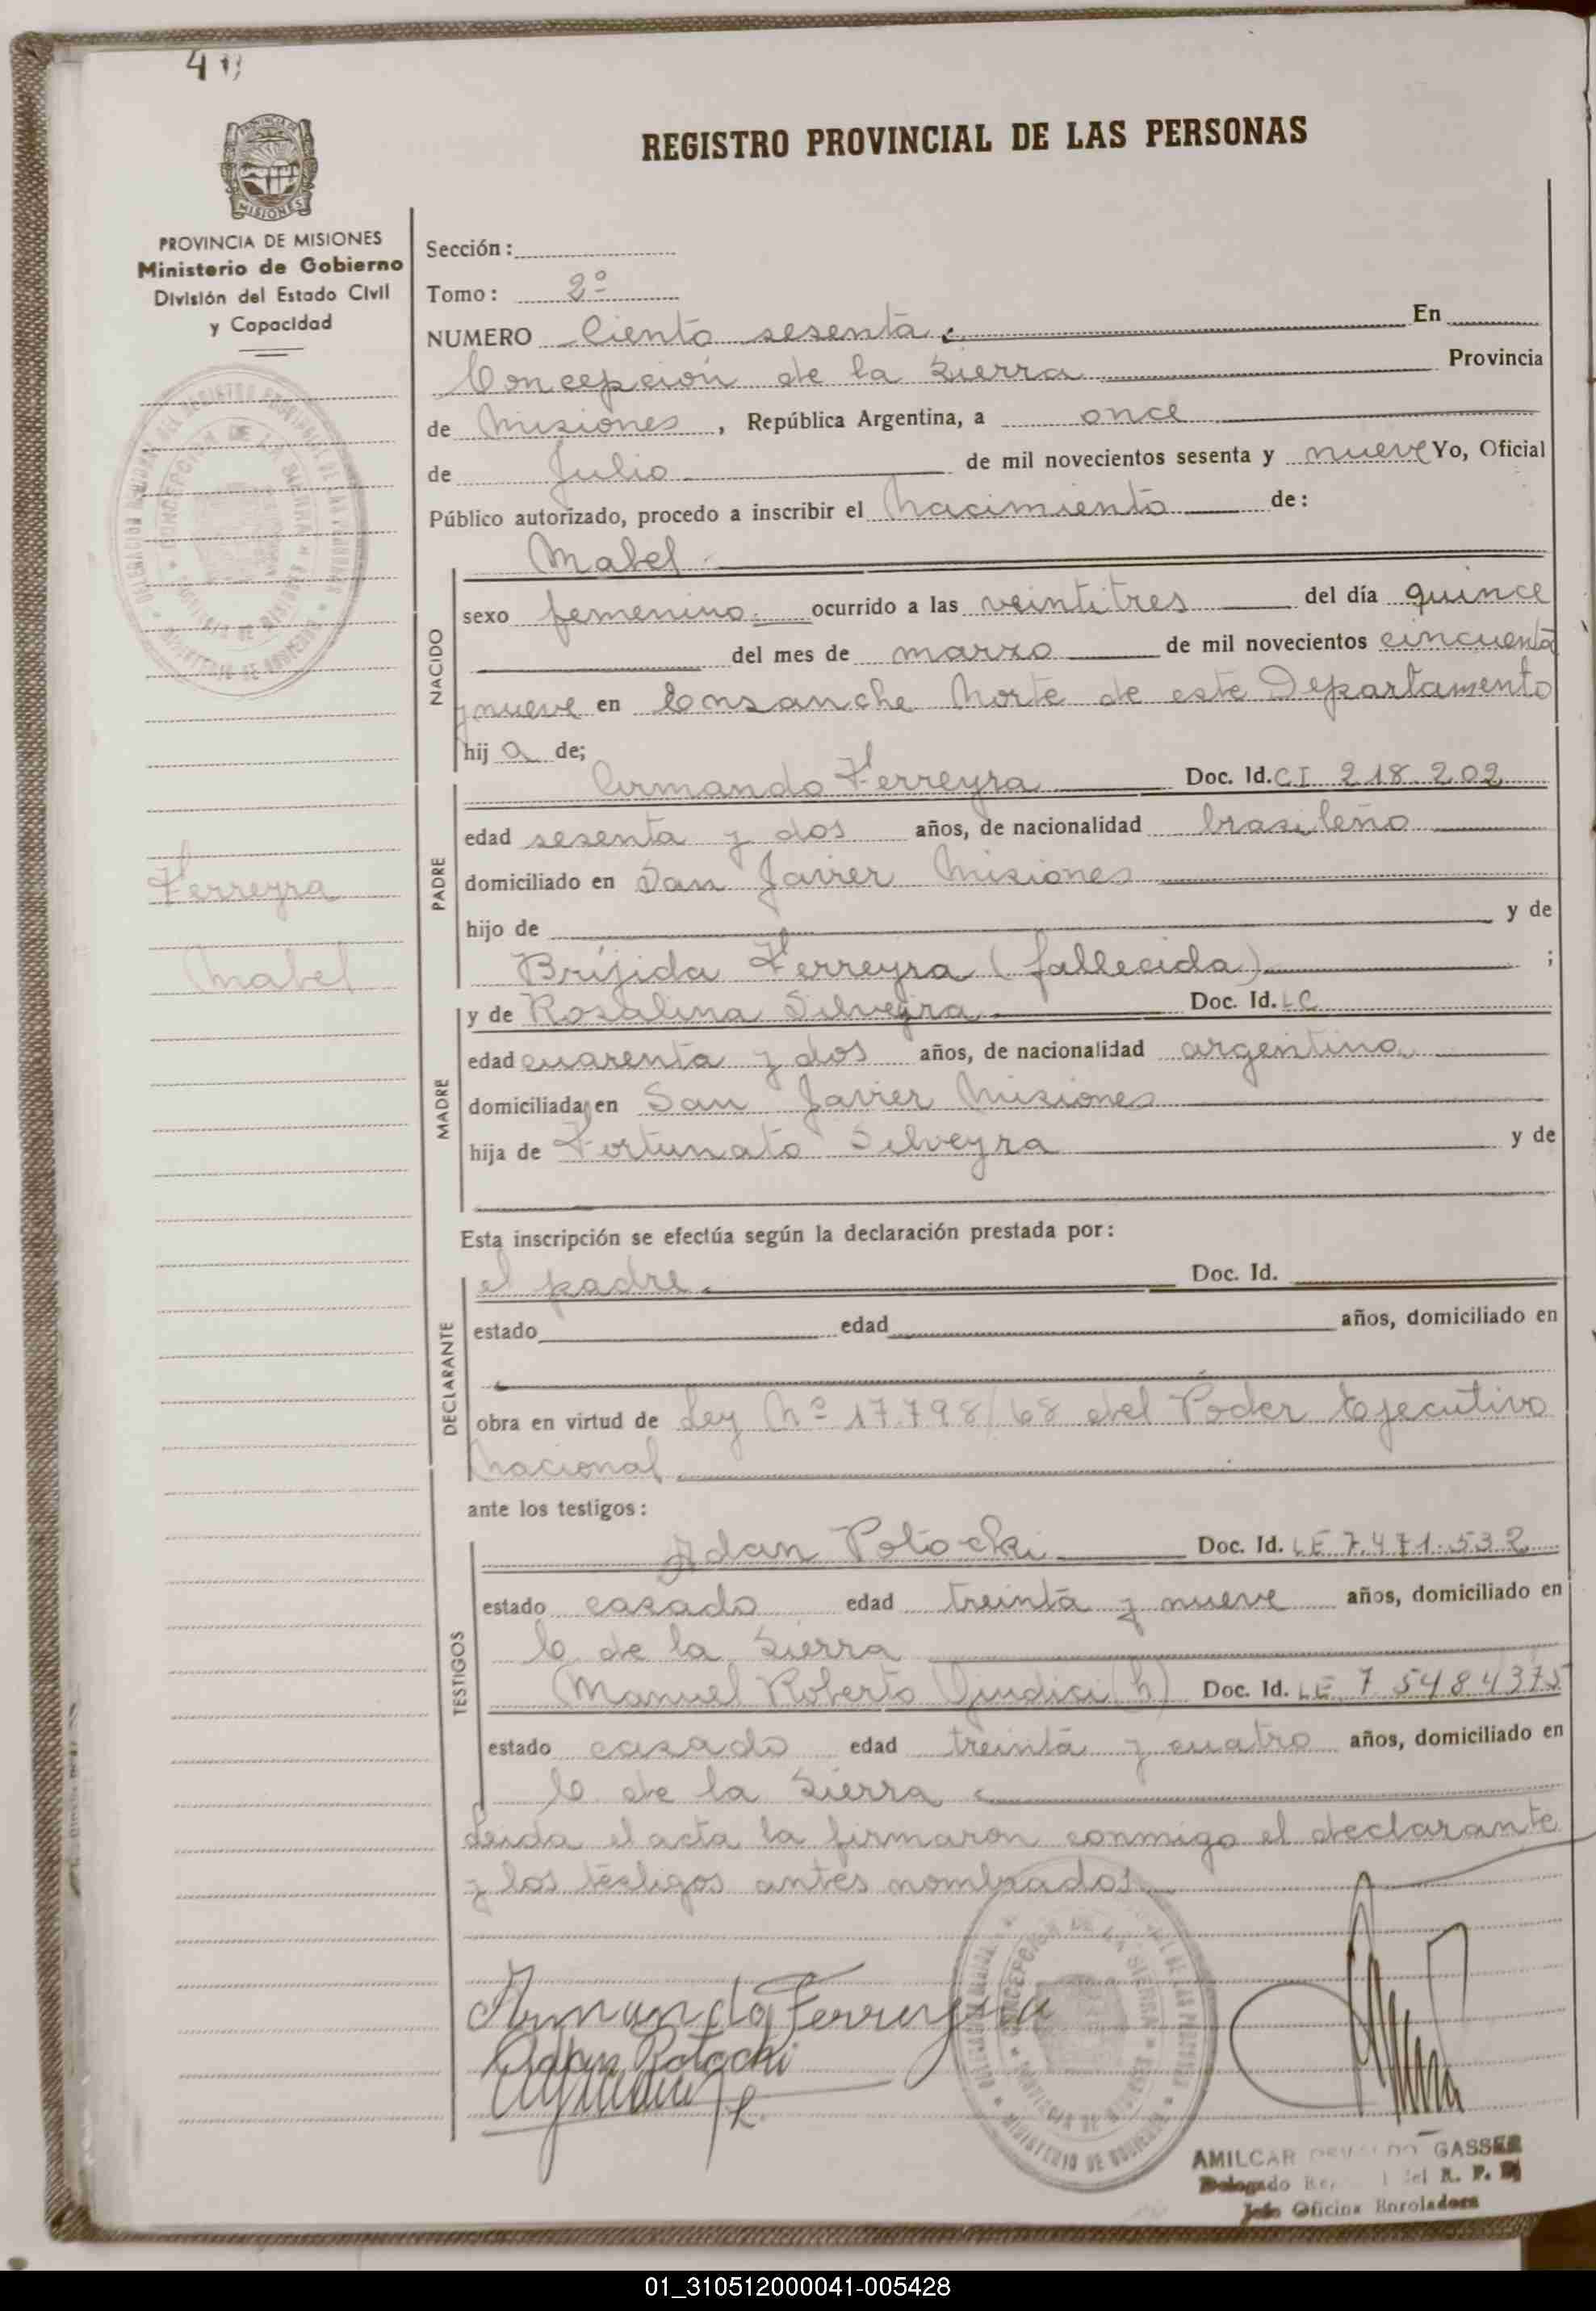 REGISTRO PROVINCIAL DE LAS PERSONAS
PROVINCIA DE MISIONES
Ministerio de Gobierno
División del Estado Civil
y Capacidad
Ferreyra
Mabel
Sección:
Tomo: 2º
NUMERO Ciento sesenta En
Concepción de la Sierra Provincia
de Misiones, República Argentina, a once
de Julio de mil novecientos sesenta y nueve Yo, Oficial
Público autorizado, procedo a inscribir el Nacimiento de:
NACIDO
Mabel
sexo femenino ocurrido a las veintitres del día quince
del mes de marzo de mil novecientos cincuenta
y nueve en Ensanche Norte de este Departamento
hija de;
PADRE
Armando Ferreyra Doc. Id. CI 218.202
edad sesenta y dos años, de nacionalidad brasileño
domiciliado en San Javier Misiones
hijo de y de
Bríjida Ferreyra (fallecida) ;
MADRE
y de Rosalina Silveyra Doc. Id. LC
edad cuarenta y dos años, de nacionalidad argentina
domiciliada en San Javier Misiones
hija de Fortunato Silveyra y de
Esta inscripción se efectúa según la declaración prestada por:
DECLARANTE
el padre Doc. Id.
estado edad años, domiciliado en
obra en virtud de Ley Nº 17.798/68 del Poder Ejecutivo
Nacional
ante los testigos:
TESTIGOS
Adan Potocki Doc. Id. LE 7.471.532
estado casado edad treinta y nueve años, domiciliado en
C. de la Sierra
Manuel Roberto Giudici (h) Doc. Id. LE 7 5484375
estado casado edad treinta y cuatro años, domiciliado en
C. de la Sierra
Leida el acta la firmaron conmigo el declarante
y los testigos antes nombrados
Armando Ferreyra
Adan Potocki
AMILCAR OSVALDO GASSER
Delegado del R. P. P.
Jefe Oficina Enroladora
01_310512000041-005428